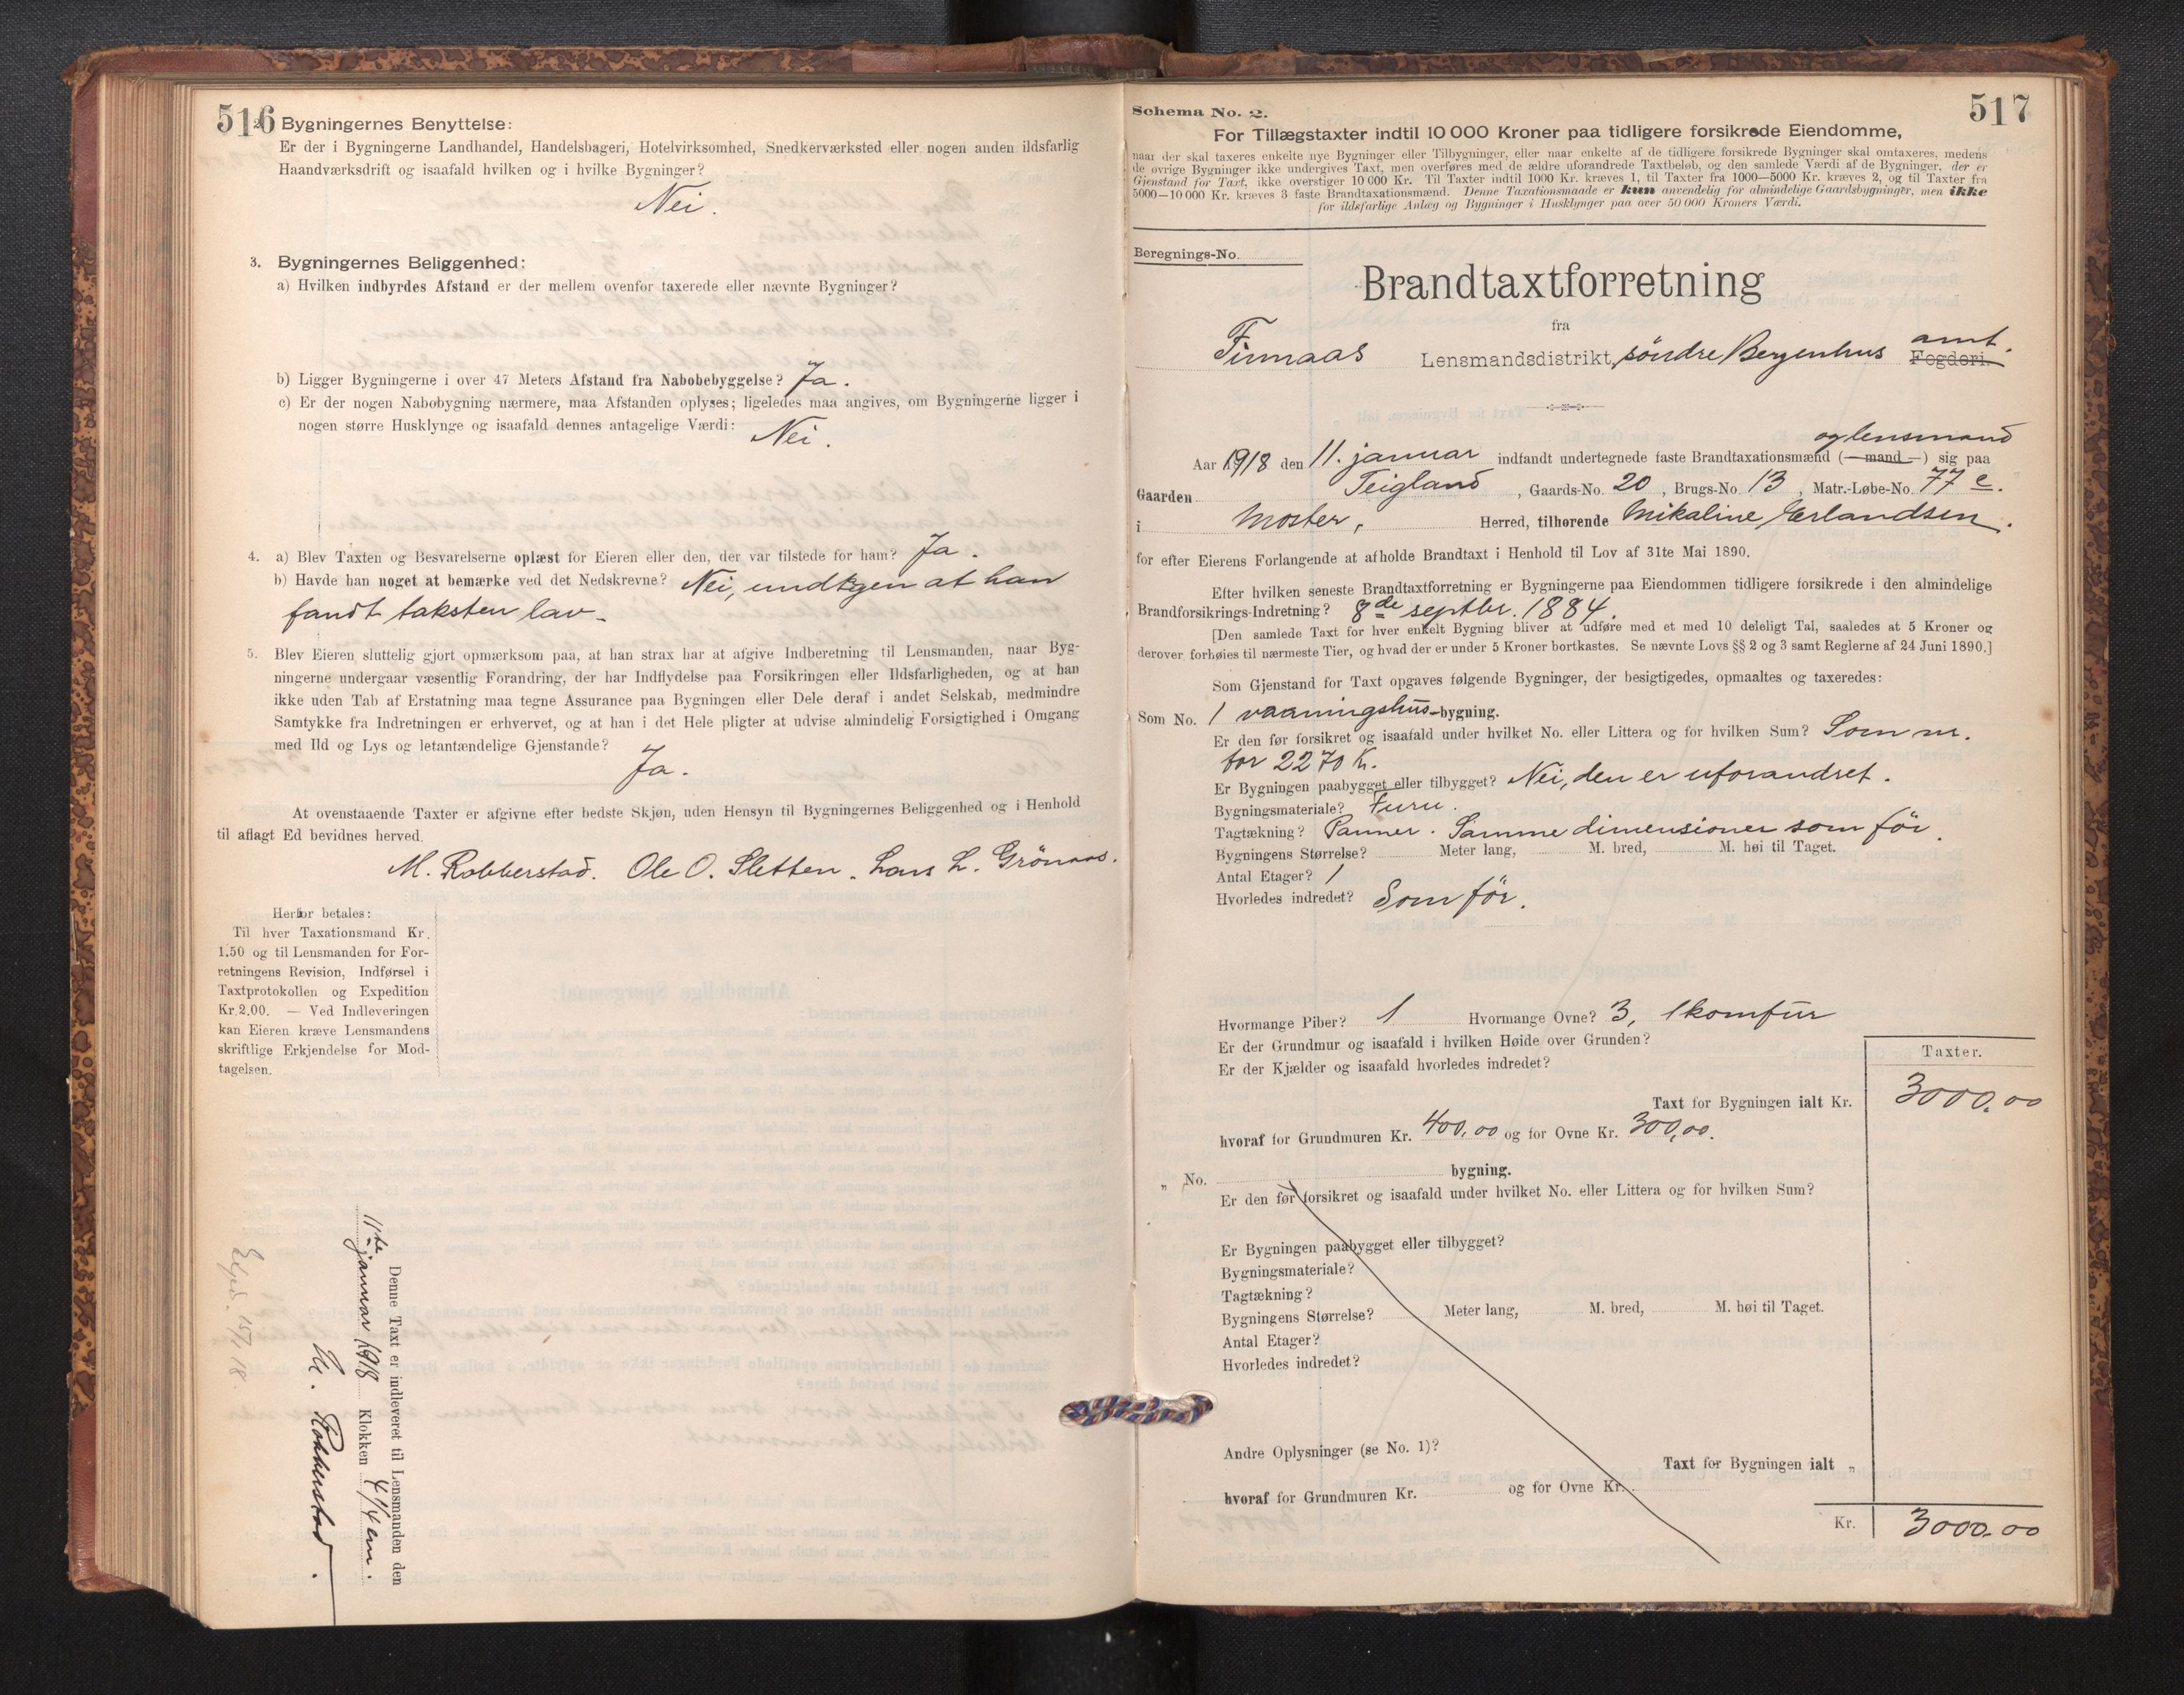 516
2. Bygningernes Benyttelse:
Er der i Bygningerne Landhandel, Handelsbageri, Hotelvirksomhed, Snedkerværksted eller nogen anden ildsfarlig
Haandværksdrift og isaafald hvilken og i hvilke Bygninger?
Nei.
3. Bygningernes Beliggenhed:
a) Hvilken indbyrdes Afstand er der mellem ovenfor taxerede eller nævnte Bygninger?
b) Ligger Bygningerne i over 47 Meters Afstand fra Nabobebyggelse? Ja.
c) Er der nogen Nabobygning nærmere, maa Afstanden oplyses; ligeledes maa angives, om Bygningerne ligger i
nogen større Husklynge og isaafald dennes antagelige Værdi: Nei.
4. a) Blev Taxten og Besvarelserne oplæst for Eieren eller den, der var tilstede for ham? Ja.
b) Havde han noget at bemærke ved det Nedskrevne? Nei, undtgen at han
fandt taksten lav.
5. Blev Eieren sluttelig gjort opmærksom paa, at han strax har at afgive Indberetning til Lensmanden, naar Byg-
ningerne undergaar væsentlig Forandring, der har Indflydelse paa Forsikringen eller Ildsfarligheden, og at han
ikke uden Tab af Erstatning maa tegne Assurance paa Bygningen eller Dele deraf i andet Selskab, medmindre
Samtykke fra Indretningen er erhvervet, og at han i det Hele pligter at udvise almindelig Forsigtighed i Omgang
med Ild og Lys og letantændelige Gjenstande?
Ja.
At ovenstaaende Taxter er afgivne efter bedste Skjøn, uden Hensyn til Bygningernes Beliggenhed og i Henhold
til aflagt Ed bevidnes herved.
M. Robberstad. Ole O. Sletten. Lars L. Grönaas.
Herfor betales:
Til hver Taxationsmand Kr.
1.50 og til Lensmanden for For-
retningens Revision, Indførsel i
Taxtprotokollen og Expedition
Kr. 2.00. — Ved Indleveringen
kan Eieren kræve Lensmandens
skriftlige Erkjendelse for Mod-
tagelsen.
Denne Taxt er indleveret til Lensmanden den
11te januar 1918 Klokken 4 1/4 em.
M. Robberstad.
Expd. 15/1 18.
517
Schema No. 2.
For Tillægstaxter indtil 10 000 Kroner paa tidligere forsikrede Eiendomme,
naar der skal taxeres enkelte nye Bygninger eller Tilbygninger, eller naar enkelte af de tidligere forsikrede Bygninger skal omtaxeres, medens
de øvrige Bygninger ikke undergives Taxt, men overføres med de ældre uforandrede Taxtbeløb, og den samlede Værdi af de Bygninger, der er
Gjenstand for Taxt, ikke overstiger 10 000 Kr. Til Taxter indtil 1000 Kr. kræves 1, til Taxter fra 1000—5000 Kr. kræves 2, og til Taxter fra
5000—10 000 Kr. kræves 3 faste Brandtaxationsmænd. Denne Taxationsmaade er kun anvendelig for almindelige Gaardsbygninger, men ikke
for ildsfarlige Anlæg og Bygninger i Husklynger paa over 50 000 Kroners Værdi.
Beregnings-No.
Brandtaxtforretning
fra
Finnaas Lensmandsdistrikt, søndre Bergenhus amt. Fogderi.
Aar 1918 den 11. januar indfandt undertegnede faste Brandtaxationsmænd (—mand—) og lensmand sig paa
Gaarden Teigland, Gaards-No. 20, Brugs-No. 13, Matr.-Løbe-No. 77 c.
i Moster, Herred, tilhørende Mikaline Erlandsen.
for efter Eierens Forlangende at afholde Brandtaxt i Henhold til Lov af 31te Mai 1890.
Efter hvilken seneste Brandtaxtforretning er Bygningerne paa Eiendommen tidligere forsikrede i den almindelige
Brandforsikrings-Indretning? 8de septbr. 1884.
[Den samlede Taxt for hver enkelt Bygning bliver at udføre med et med 10 deleligt Tal, saaledes at 5 Kroner og
derover forhøies til nærmeste Tier, og hvad der er under 5 Kroner bortkastes. Se nævnte Lovs §§ 2 og 3 samt Reglerne af 24 Juni 1890.]
Som Gjenstand for Taxt opgaves følgende Bygninger, der besigtigedes, opmaaltes og taxeredes:
Som No. 1 vaaningshus-bygning.
Er den før forsikret og isaafald under hvilket No. eller Littera og for hvilken Sum? Som nr.
for 2270 K.
Er Bygningen paabygget eller tilbygget? Nei, den er uforandret.
Bygningsmateriale? Furu.
Tagtækning? Panner. Samme dimensioner som før.
Bygningens Størrelse? Meter lang, M. bred, M. høi til Taget.
Antal Etager? 1
Hvorledes indredet? Som før.
Hvormange Piber? 1 Hvormange Ovne? 3, 1 komfur
Er der Grundmur og isaafald i hvilken Høide over Grunden?
Er der Kjælder og isaafald hvorledes indredet?
Taxter.
Taxt for Bygningen ialt Kr. 3000.00
hvoraf for Grundmuren Kr. 400,00 og for Ovne Kr. 300,00.
„ No. bygning.
Er den før forsikret og isaafald under hvilket No. eller Littera og for hvilken Sum?
Er Bygningen paabygget eller tilbygget?
Bygningsmateriale?
Tagtækning?
Bygningens Størrelse? Meter lang, M. bred, M. høi til Taget.
Antal Etager?
Hvorledes indredet?
Andre Oplysninger (se No. 1)?
Taxt for Bygningen ialt „
hvoraf for Grundmuren Kr. og for Ovne Kr.
Kr. 3000.00